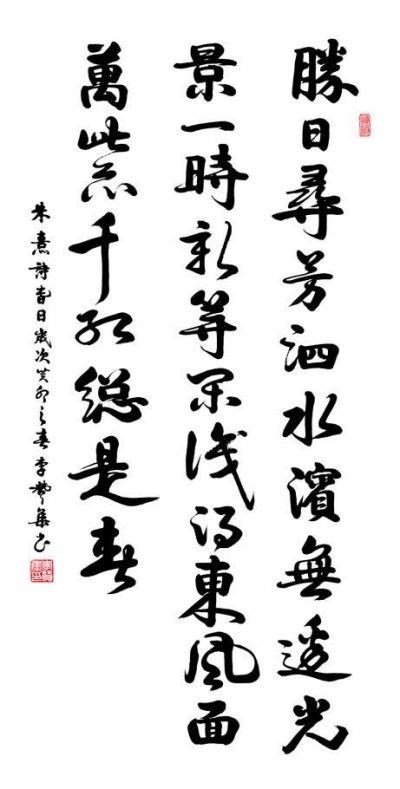 勝日尋芳泗水濱無邊光
景一時新等閒識得東風面
萬紫千紅總是春
朱熹詩春日歲次癸卯之春李集書